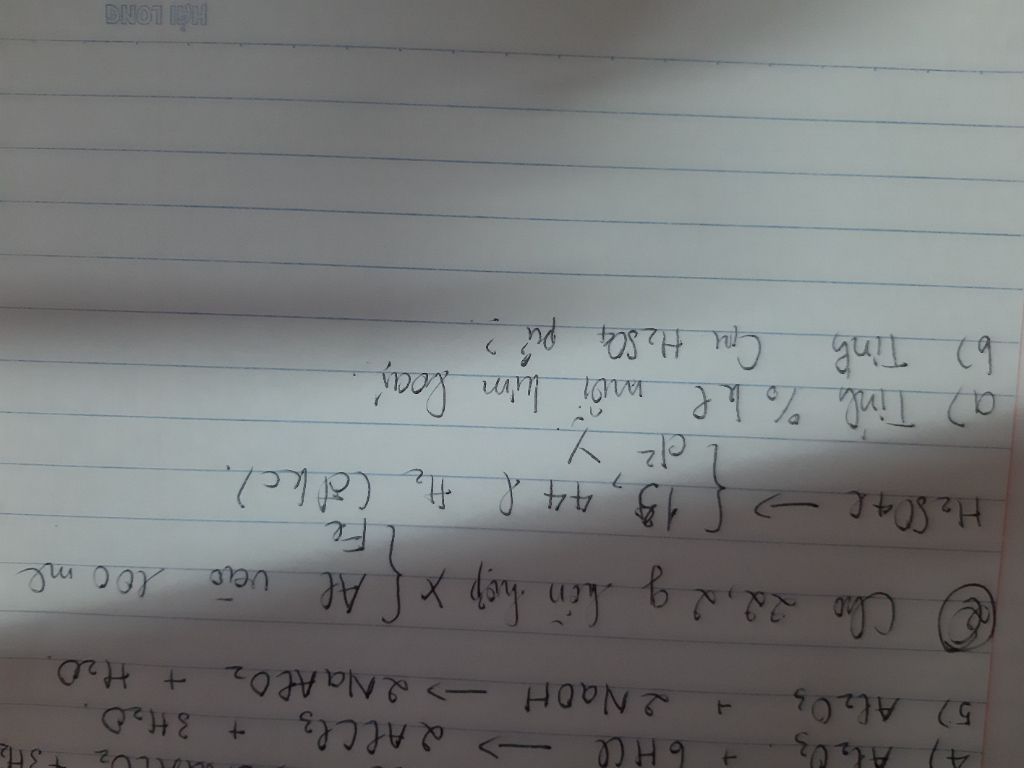 4) Al₂O₃ + 6HCl → 2AlCl₃ + 3H₂O.
5) Al₂O₃ + 2NaOH → 2NaAlO₂ + H₂O.
② Cho 22,2 g hỗn hợp X { Al Fe vào 200 ml
H₂SO₄ l → { 13,44 l H₂ (đktc). dd² Y
a) Tính % kl mỗi kim loại.
b) Tính C_M H₂SO₄ pứ?
HẢI LONG